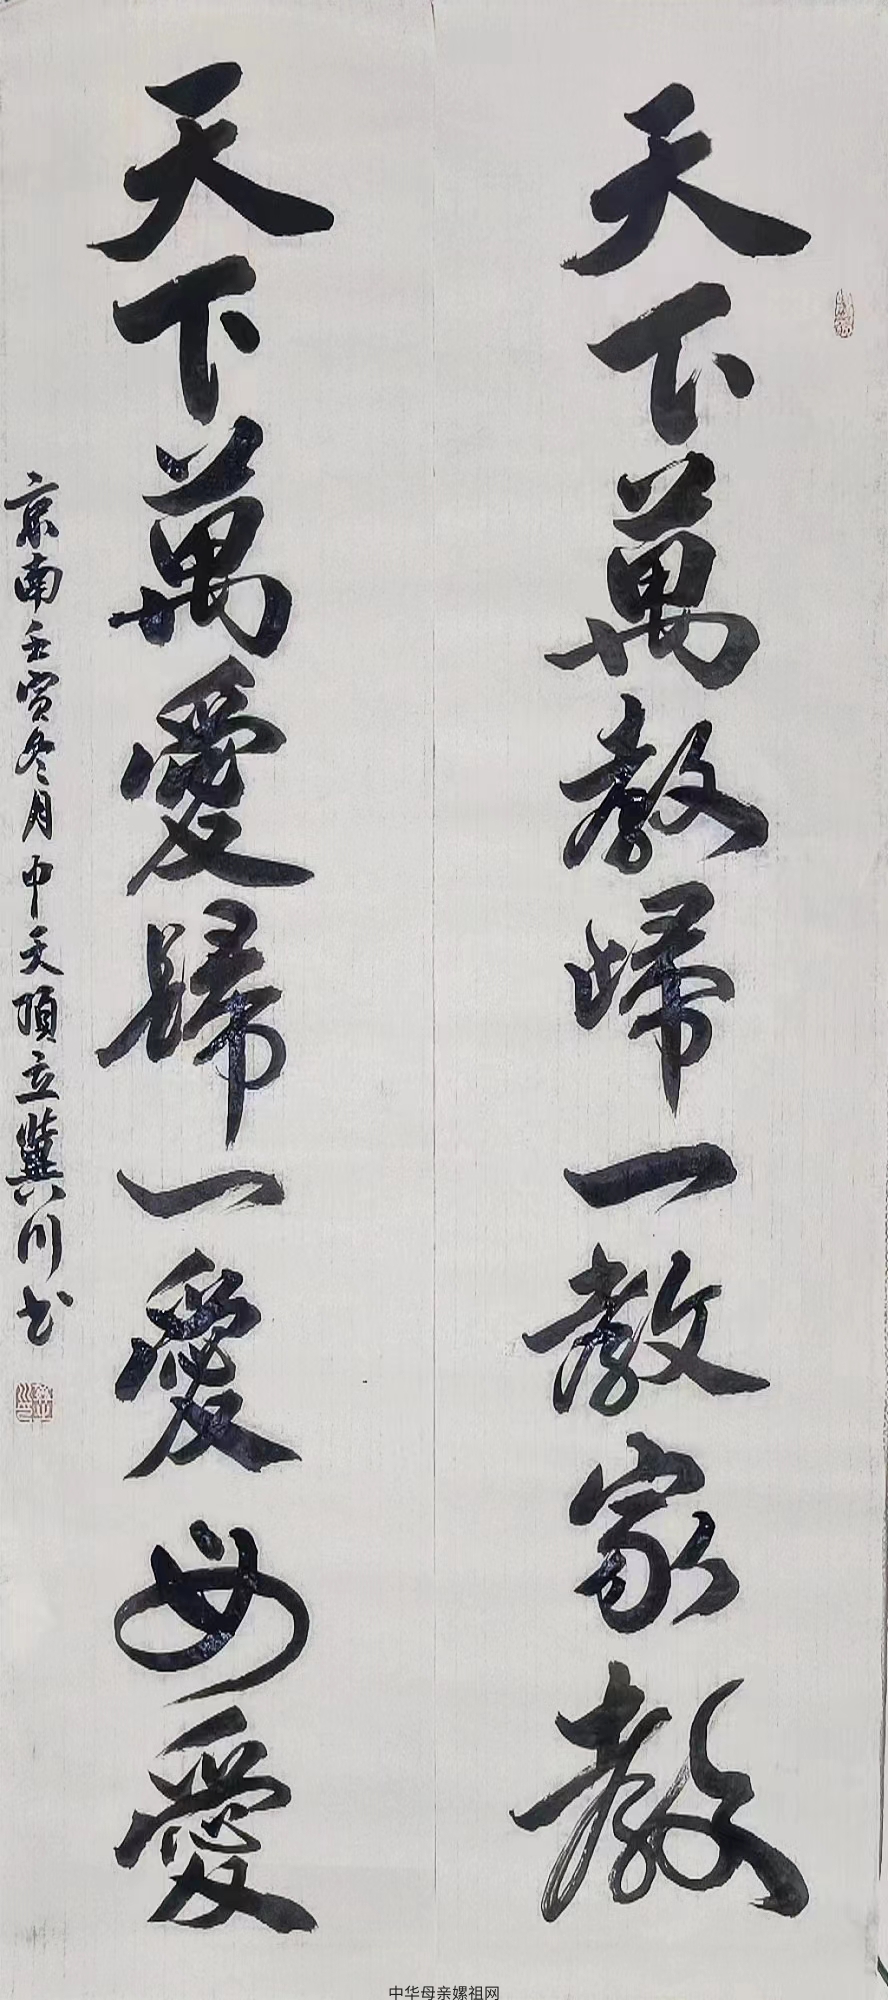 天下萬教歸一教家教
天下萬愛歸一愛母愛
京南壬寅冬月中天頂立冀川书
中华母亲嫘祖网